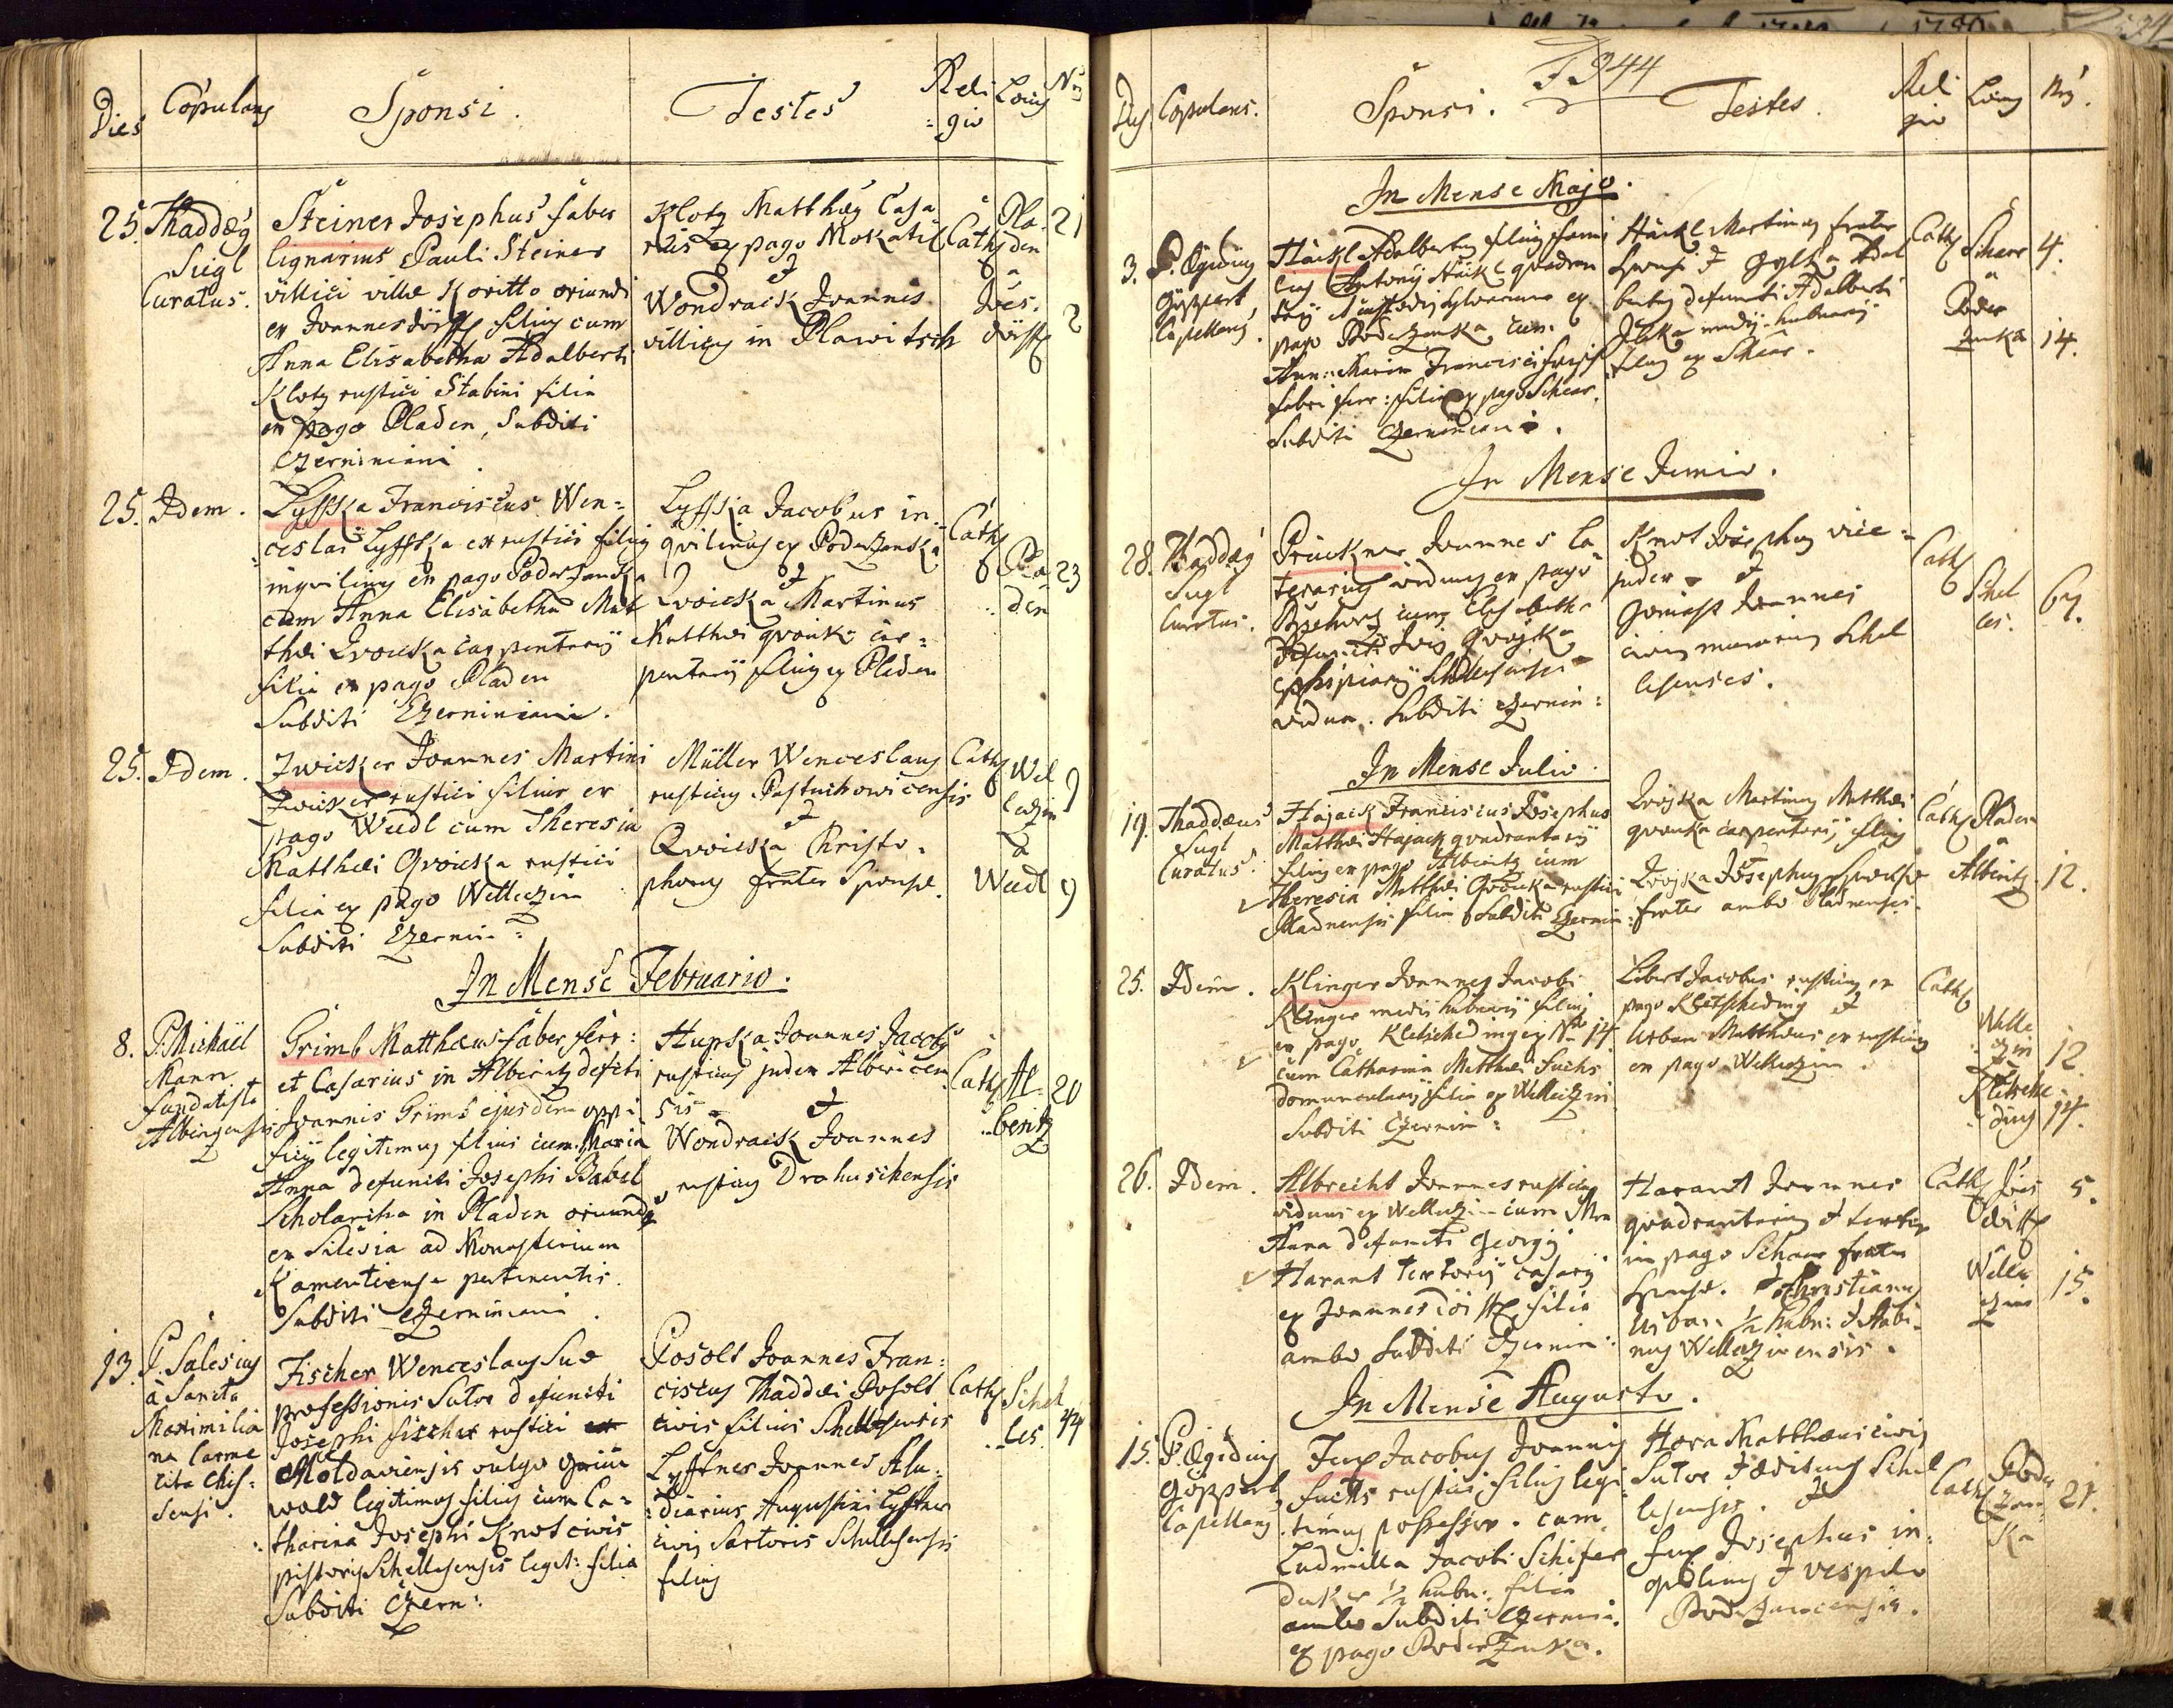 Dies
Copulans
Sponsi.
Testes
Reli
=gio
Locus
Nrus
25. Thaddæus
Sugl
Curatus.
Steiner Josephus faber
lignarius Pauli Steiner
villici villæ Koritto oriundi
ex Joannesdörff filius cum
Anna Elisabetha Adalberti
Klotz rustici Stabini filia
ex pago Pladen, Subditi
Czerniniani.
Klotz Matthæus Casa
rius ex pago Mokatil
&
Wondrack Joannes
villicus in Plawitsch
Cath
Pla-
den
a
Jões-
dörff
21
2
25. Idem.
Lyffka Franciscus Wen=
ceslai Lyffka ex rustici filius
inquilinus ex pago Poderzanka
cum Anna Elisabetha Mat
thæi Qvoicka carpentarij
filia ex pago Pladen
Subditi Czerniniani.
Lyffka Jacobus in=
qvilinus ex Poderzanka
&
Qvoicka Martinus
Matthæi qvoicka car=
pentarij filius ex Pladen
Cath
Pla
den
23
25. Idem.
Zwicker Joannes Martini
Zwicker rustici filius ex
pago Weedl cum Theresia
Matthæi Qvoicka rustici
filia ex pago Welleczin
Subditi Czernin:
Müller Wenceslaus
rusticus Pastuchowicensis
&
Qvoicka Christo=
phorus frater Sponsæ.
Cath
Wel
leczin
a
Weedl
9
9
In Mense Februario.
8. P. Michaël
Mann
fundatista
Albinzensis
Grimb Matthæus faber ferr:
et Casarius in Alberitz defcti
Joannis Grimb ejusdem opi
ficij legitimus filius cum Maria
Anna defuncti Josephi Babel
Scholaricha in Pladen oriundus
ex Silesia ad Monasterium
Kamentiense pertinentis.
Subditi Czerniniani.
Hupska Joannes Jacobs
rusticus judex Albericen
sis. &
Wondracck Joannes
rusticus Drahuschensis
Cath
Al-
beritz
20
13. P. Salesius
à Sancta
Maximilia
na Carme
lita Chis=
sensis.
Fischer Wenceslaus Suæ
professionis Sutor defuncti
Josephi fischer rustici
Moldaviensis vulgo Grün
wald legitimus filius cum Ca=
tharina Josephi Knot civis
pistoris Schellesensis legit: filia
Subditi Czern:
Posolt Joannes Fran=
ciscus Thaddæi Posolt
civis filius Schellesensis
Lyftner Joannes Stu=
diarius, Augustini Lyftner
civis Sartoris Schellesensis
filius
Cath
Schel
les.
44
1744
Dies
Copulans.
Sponsi.
Testes.
Reli
gio
Locus
Nrus.
In Mense Majo.
3. P. Ægidius
Göppert
Capellanus.
Häckl Adalbertus filius fami
lius Antonij Häckl quadran
tarij & custodis sylvarum ex
pago Poderzanka cum
Ann: Maria Francisci
fabri ferr: filia ex pago Schear.
Subditi Czerniniani.
Häckl Martinus frater
sponsi & Adal
bertus defuncti Adalberti
filius ex Schear.
Cath
Schear
a
Poder
zanka
4.
14.
In Mense Junio.
28. Thaddæus
Sugl
Curatus.
Prückner Joannes La
terarius viduus ex pago
cum Elisabetha
Defuncti Jois Qvojcka
Ephipiarij Schellesensis
vidua. Subditi Czernin:
Knot Josephus vice=
judex &
Joannes
civis murarius Schel
lesenses.
Cath
Schel
les.
67.
In Mense Julio.
19. Thaddæus
Sugl
Curatus.
Hajack Franciscus Josephus
Matthæi Hajack quadrantarij
filius ex pago Alberitz cum
Theresia Matthæi Qvoicka rustici
Pladnensis filia Subditi Czernin:
Qvojcka Martinus Matthæi
qvoicka carpentarij filius
Qvojcka Josephus Sponsæ
frater ambo Pladnenses.
Cath
Pladen
a
Alberitz
12.
25. Idem.
Klinger Joannes Jacobi
Klinger medij hubarij filius
ex pago Kletscheding ex Nro 14
cum Catharina Matthæi Fuchs
domuncularij filia ex Welleczin
Subditi Czernin:
Libert Jacobus rusticus ex
pago Kletscheding &
Urban Matthæus ex rusticus
ex pago Welleczin.
Cath
Welle
czin
Kletsche
ding
12.
14.
26. Idem.
Albrecht Joannes rusticus
viduus ex Welleczin cum Mra
Anna defuncti Georgij
Harant textoris casarij
ex Joannesdörff filia
ambo Subditi Czernin:
Harant Joannes
quadrantarius & textor
in pago Schear frater
sponsæ. & Christianus
Urban ½ hubr: & Stabi=
nus Welleczinensis.
Cath
Jões
dörff
Welle
czin
5.
15.
In Mense Augusto.
15. P. Ægidius
Göppert
Capellanus
Fux Jacobus Joannis
Fuchs rustici filius legi
timus possessor. cum
Ludmilla Jacobi Schifer
ducker ½ hubr: filia
ambo Subditi Czernin:
ex pago Poderzanka.
Hora Matthæus civis
Sutor & ædituus Schel
lesensis. &
Fux Josephus in=
quilinus & vespilo
Poderzancensis.
Cath
Pode
rzan
ka
21.